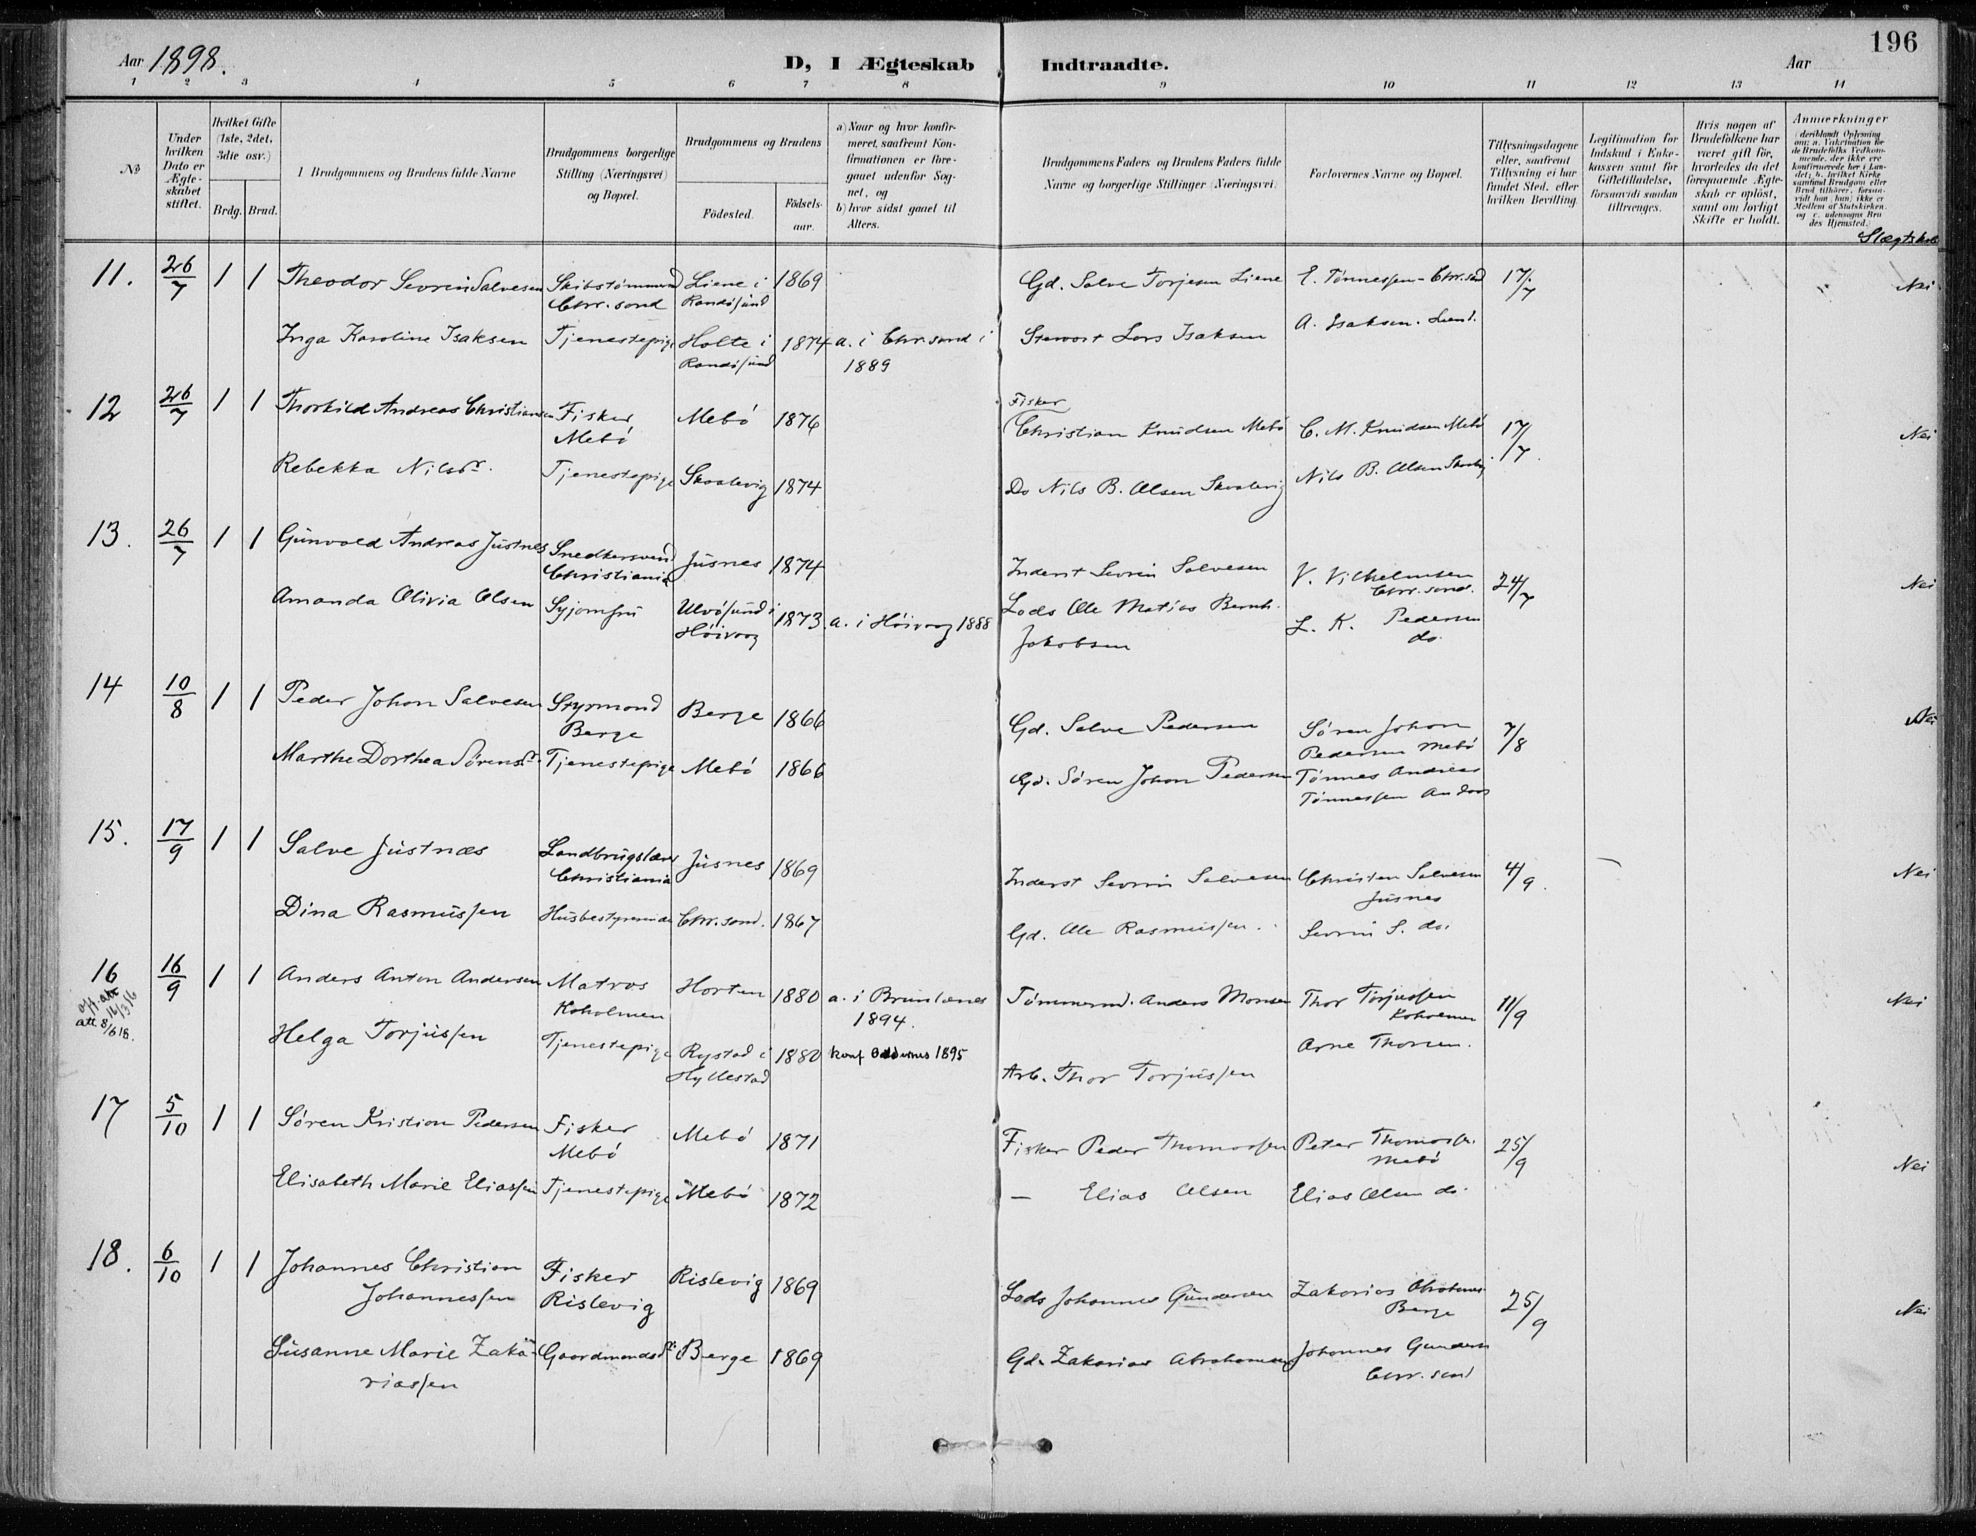 196
Aar 1898.
D, I Ægteskab Indtraadte.
Aar
1 2 3 4 5 6 7 8 9 10 11 12 13 14
No
Under hvilken Dato er Ægteskabet stiftet.
Hvilket Gifte (1ste, 2det, 3die osv.)
Brdg. Brud.
1 Brudgommens og Brudens fulde Navne
Brudgommens borgerlige Stilling (Næringsvei) og Bopæl.
Brudgommens og Brudens
Fødested.
Fødselsaar.
a) Naar og hvor konfirmeret, saafremt Konfirmationen er foregaaet udenfor Sognet, og
b) hvor sidst gaaet til Alters.
Brudgommens Faders og Brudens Faders fulde Navne og borgerlige Stillinger (Næringsvei).
Forlovernes Navne og Bopæl.
Tillysningsdagene eller, saafremt Tillysning ei har fundet Sted, efter hvilken Bevilling.
Legitimation for Indskud i Enkekassen samt for Giftetilladelse, forsaavidt saadan tiltrænges.
Hvis nogen af Brudefolkene har været gift før, hvorledes da det foregaaende Ægteskab er opløst, samt om lovligt Skifte er holdt.
Anmerkninger
Slægtskab
11. 26/7 1 1 Theodor Sevrin Salvesen Skibstømmermd Chr.sand Liene i Randøsund 1869 Gd. Salve Torjesen Liene E. Tønnessen - Chr.sad 17/7 Nei
Inga Karoline Isaksen Tjenestepige Holte i Randøsund 1874 a. i Chr.sand i 1889 Stewart Lars Isaksen A. Isaksen. Lund.
12 26/7 1 1 Thorkild Andreas Christiansen Fisker Mebø Mebø 1876 Fisker Christian Knudsen Mebø C. M. Knudsen Mebø 17/7. Nei
Rebekka Nilsdr. Tjenestepige Skaalevig 1874 Do Nils B. Olsen Skaalevig Nils B. Olsen
13. 26/7 1 1 Gunvald Andreas Justnes Snedkersvend Christiania Jusnes 1874 Inderst Sevrin Salvesen V. Vilhelmsen Chr.sand. 24/7 Nei
Amanda Olivia Olsen Syjomfru Ulvøsund i Høivaag 1873 a. i Høivaag 1888 Lods Ole Matias Bernh. Jakobsen L. K. Pedersen do.
14 10/8 1 1 Peder Johan Salvesen Styrmand Berge Berge 1866 Gd. Salve Pedersen Søren Johan Pedersen Mebø 7/8 Nei
Marthe Dorthea Sørensdr. Tjenestepige Mebø 1866 Gd. Søren Johan Pedersen Tønnes Andreas Tønnessen
15. 17/9 1 1 Salve Justnæs Landbrugslærer Christiania Jusnes 1869 Inderst Sevrin Salvesen Christen Salvesen Jusnes 4/9. Nei
Dina Rasmussen Husbestyrerinde Chr.sand. 1867 Gd. Ole Rasmussen. Sevrin S. do.
16 16/9 1 1 Anders Anton Andersen Matros Koholmen Horten 1880 a. i Brunlanes 1894. Tømmermd. Anders Monsen Thor Torjussen Koholmen 11/9 Nei
att 8/6 18.
Helga Torjussen Tjenestepige Rystad i Hyllestad 1880 konf Oddernes 1895 Arb. Thor Torjussen Arne Thorsen.
17 5/10 1 1 Søren Kristian Pedersen Fisker Mebø Mebø 1871 Fisker Peder Thomassen Peter Thomassen Mebø 25/9 Nei
Elisabeth Marie Eliassen Tjenestepige Mebø 1872 — Elias Olsen Elias Olsen do.
18. 6/10 1 1 Johannes Christian Johannessen Fisker Rislevig Rislevig 1869 Lods Johannes Gundersen Zakarias Abrahams. Berge 25/9 Nei
Susanne Marie Zakariassen Gaardmandsdr. Berge 1869 Gd. Zakarias Abrahamsen Johannes Gunders. Chr.sand